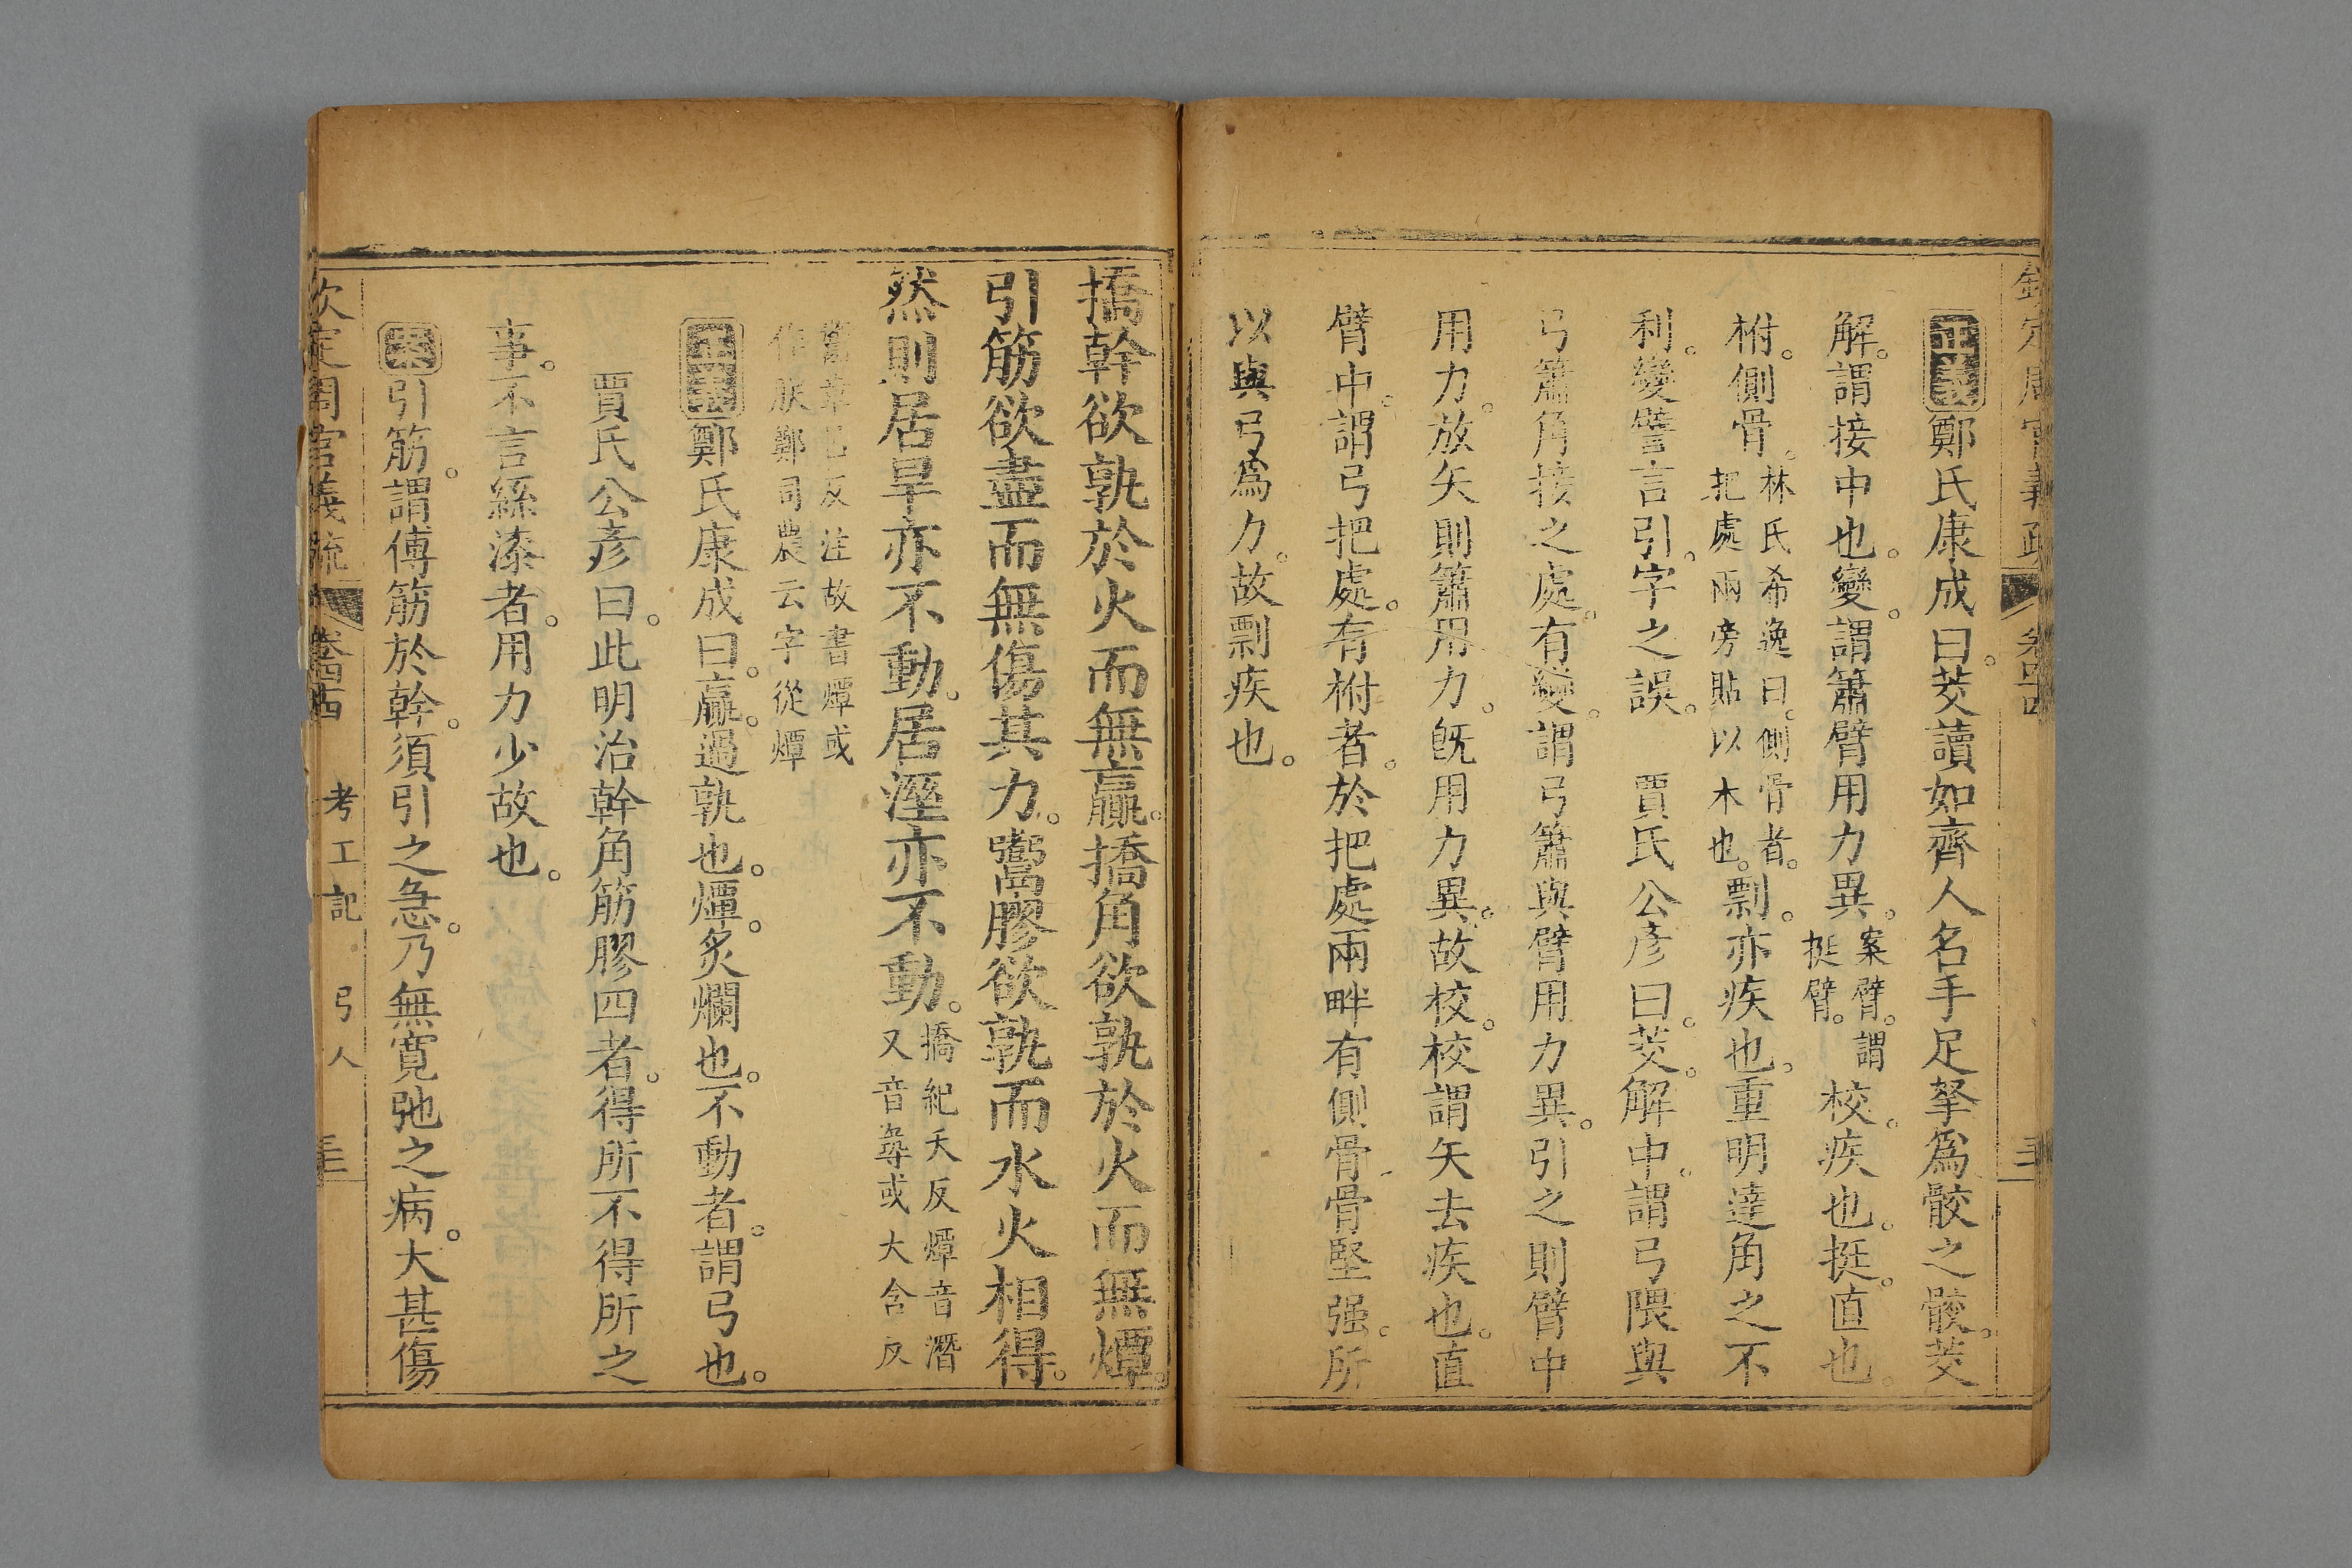 欽定周官義疏 卷四十四
正義鄭氏康成曰茭讀如齊人名手足掔爲骹之骹茭
解謂接中也變謂簫臂用力異案臂謂挺臂校疾也挺直也
柎側骨林氏希逸曰側骨者把處兩旁貼以木也剽亦疾也重明達角之不
利變譬言引字之誤 賈氏公彦曰茭解中謂弓隈與
弓簫角接之處有變謂弓簫與臂用力異引之則臂中
用力放矢則簫用力旣用力異故校校謂矢去疾也直
臂中謂弓把處有柎者於把處兩畔有側骨骨堅强所
以與弓爲力故剽疾也
撟幹欲孰於火而無贏撟角欲孰於火而無燂
引筋欲盡而無傷其力鬻膠欲孰而水火相得
然則居旱亦不動居溼亦不動撟紀夭反燂音潛又音尋或大含反
鬻章呂反注故書燂或作朕鄭司農云字從燂
正義鄭氏康成曰贏過孰也燂炙爛也不動者謂弓也
賈氏公彦曰此明治幹角筋膠四者得所不得所之
事不言絲漆者用力少故也
案引筋謂傅筋於幹須引之急乃無寛弛之病大甚傷
欽定周官義疏 卷四十四 考工記 弓人